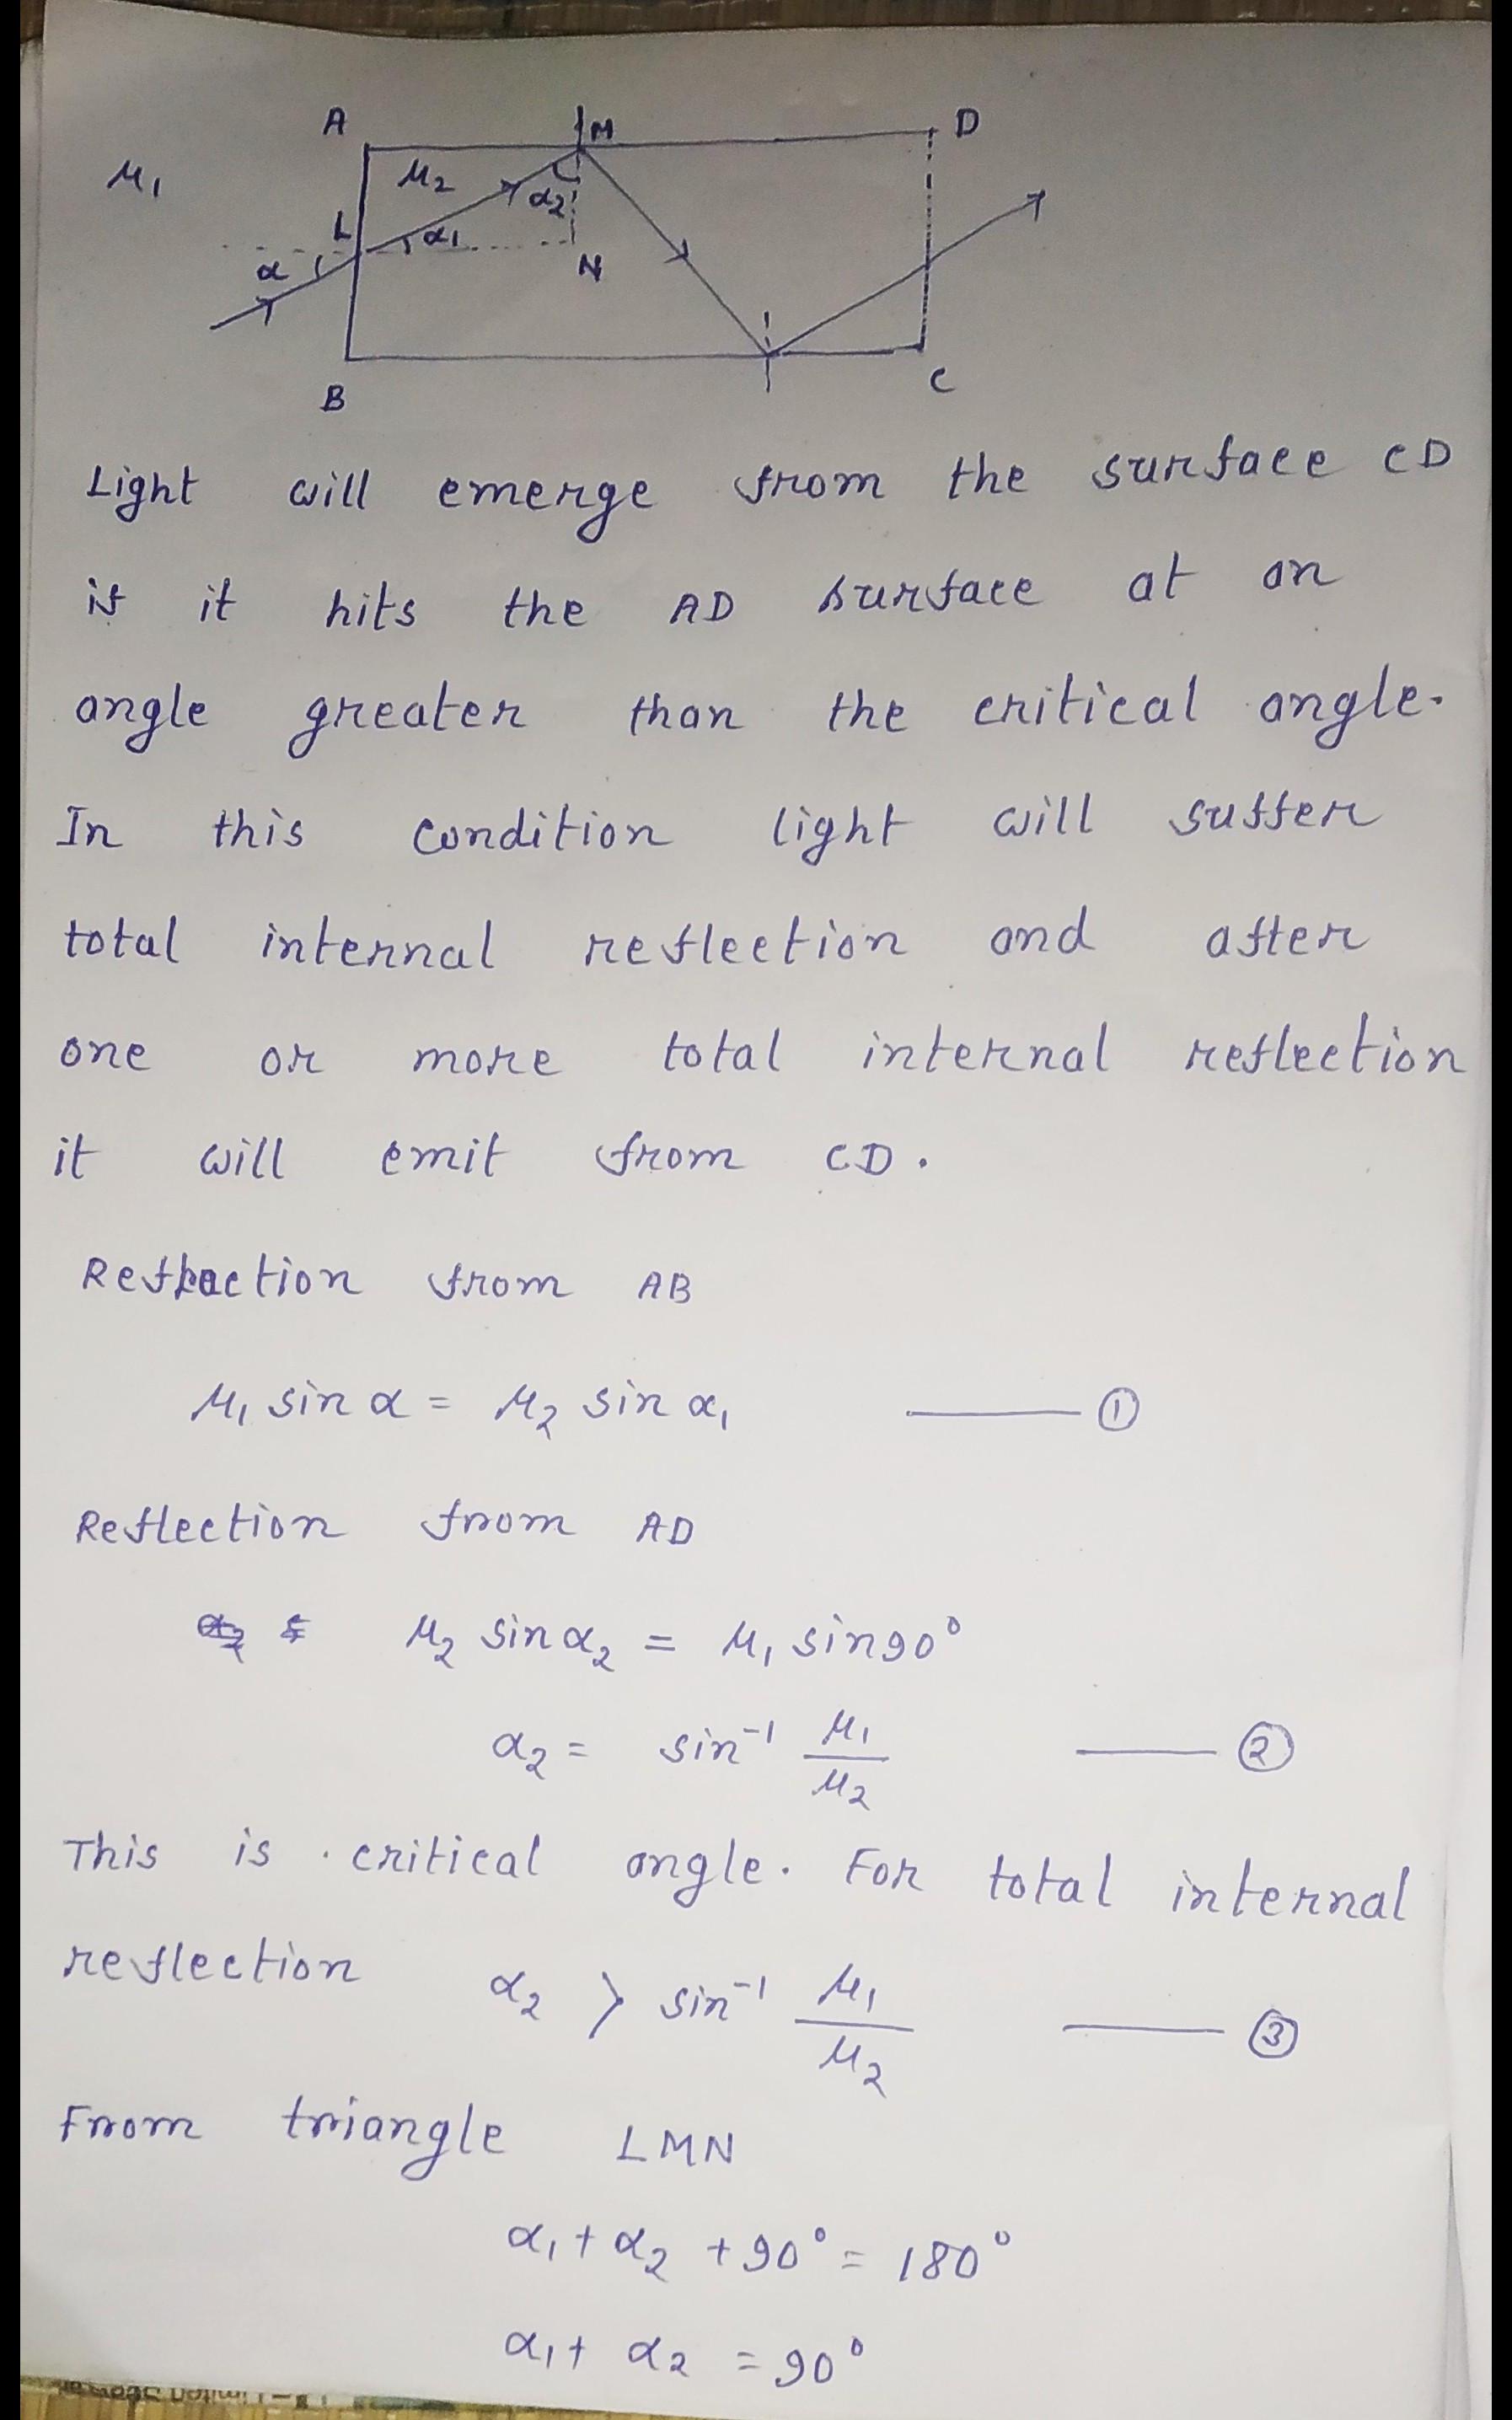 A
M
D
μ1
μ2
α2
L
α1
α
N
B
C
Light will emerge from the surface CD
if it hits the AD surface at an
angle greater than the critical angle.
In this condition light will suffer
total internal reflection and after
one or more total internal reflection
it will emit from CD.
Refraction from AB
μ1 sin α = μ2 sin α1 —— ①
Reflection from AD
μ2 sin α2 = μ1 sin90°
α2 = sin⁻¹ μ1/μ2 —— ②
This is critical angle. For total internal
reflection α2 > sin⁻¹ μ1/μ2 —— ③
From triangle LMN
α1 + α2 + 90° = 180°
α1 + α2 = 90°